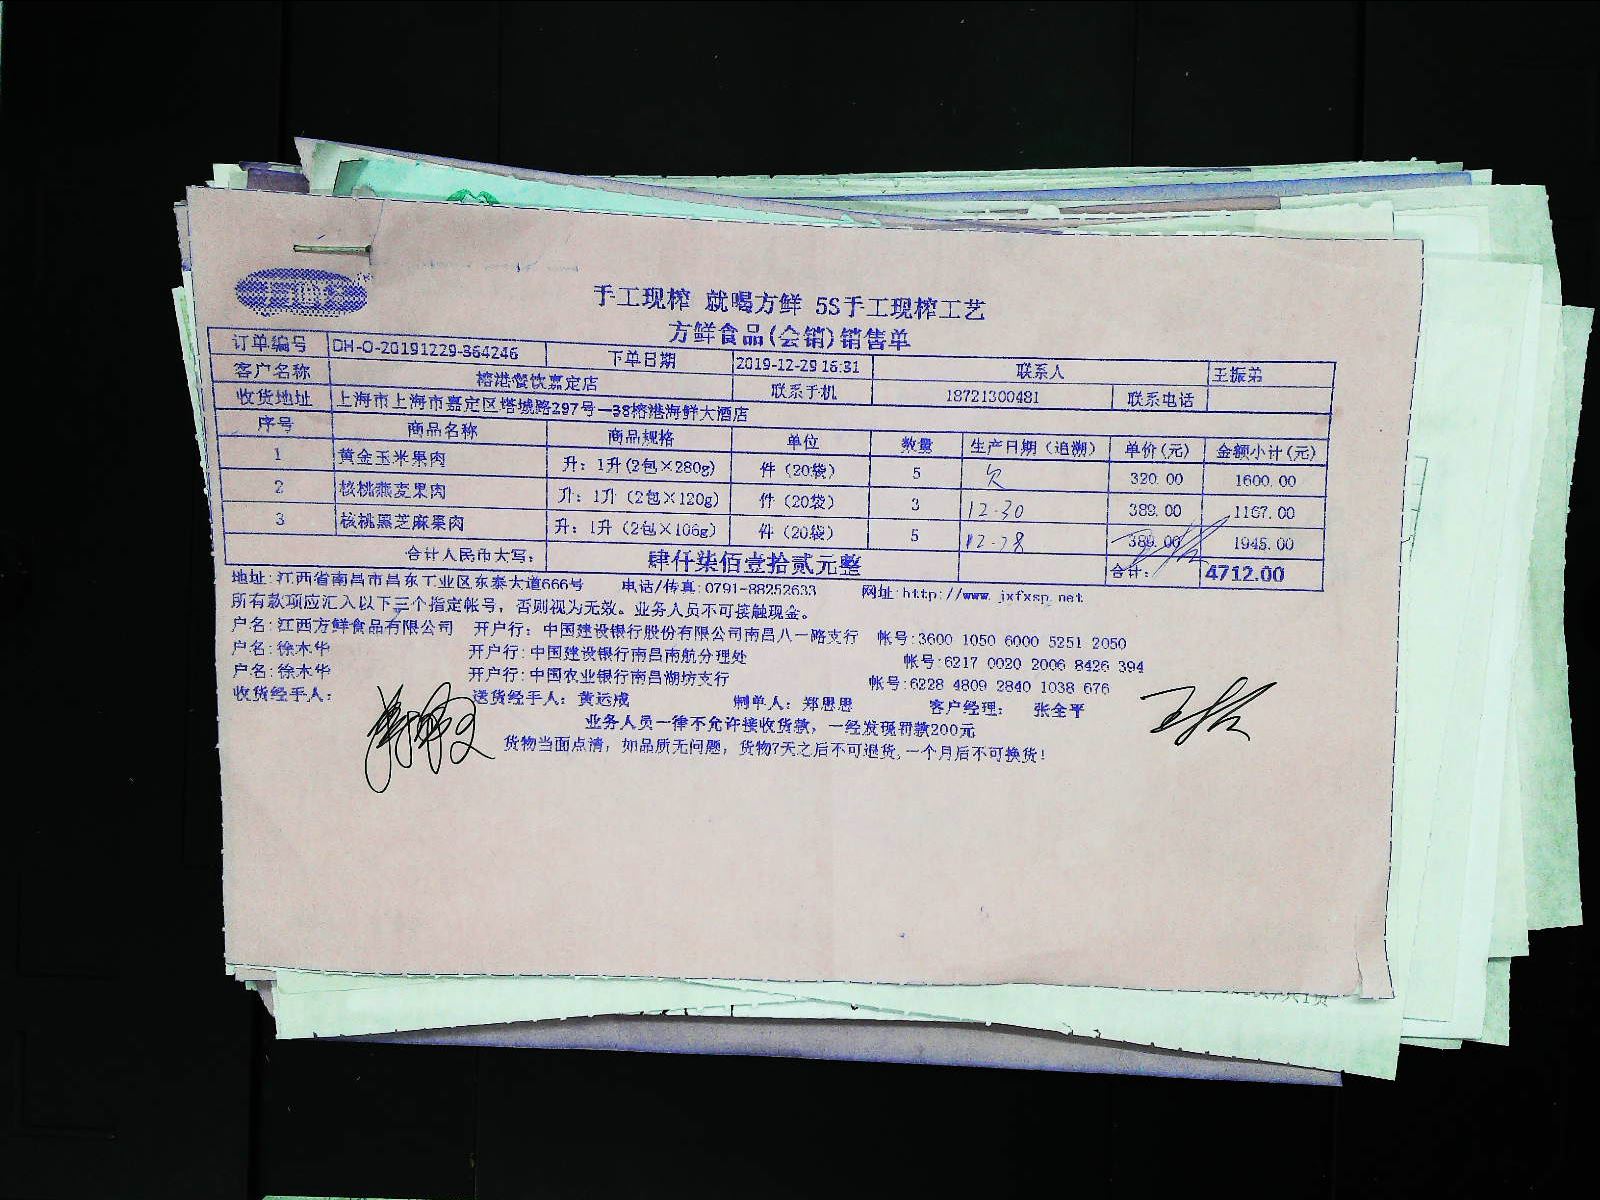 手工现榨 就喝方鲜 5S手工现榨工艺
方鲜食品(会销)销售单
订单编号 DH-O-20191229-364246 下单日期 2019-12-29 16:31 联系人 王振弟
客户名称 榕港餐饮嘉定店 联系手机 18721300481 联系电话
收货地址 上海市上海市嘉定区塔城路297号—38榕港海鲜大酒店
序号 商品名称 商品规格 单位 数量 生产日期（追溯） 单价(元) 金额小计(元)
1 黄金玉米果肉 升：1升(2包×280g) 件（20袋） 5 欠 320.00 1600.00
2 核桃燕麦果肉 升：1升（2包×120g） 件（20袋） 3 12.30 389.00 1167.00
3 核桃黑芝麻果肉 升：1升（2包×106g） 件（20袋） 5 12-28 389.00 1945.00
合计人民币大写： 肆仟柒佰壹拾贰元整 合计： 4712.00
地址:江西省南昌市昌东工业区东泰大道666号 电话/传真:0791-88252633 网址:http://www.jxfxsp.net
所有款项应汇入以下三个指定帐号，否则视为无效。业务人员不可接触现金。
户名:江西方鲜食品有限公司 开户行：中国建设银行股份有限公司南昌八一路支行 帐号:3600 1050 6000 5251 2050
户名:徐木华 开户行:中国建设银行南昌南航分理处 帐号:6217 0020 2006 8426 394
户名:徐木华 开户行:中国农业银行南昌湖坊支行 帐号:6228 4809 2840 1038 676
收货经手人: 送货经手人：黄远成 制单人：郑思思 客户经理： 张全平
业务人员一律不允许接收货款，一经发现罚款200元
货物当面点清，如品质无问题，货物7天之后不可退货,一个月后不可换货！